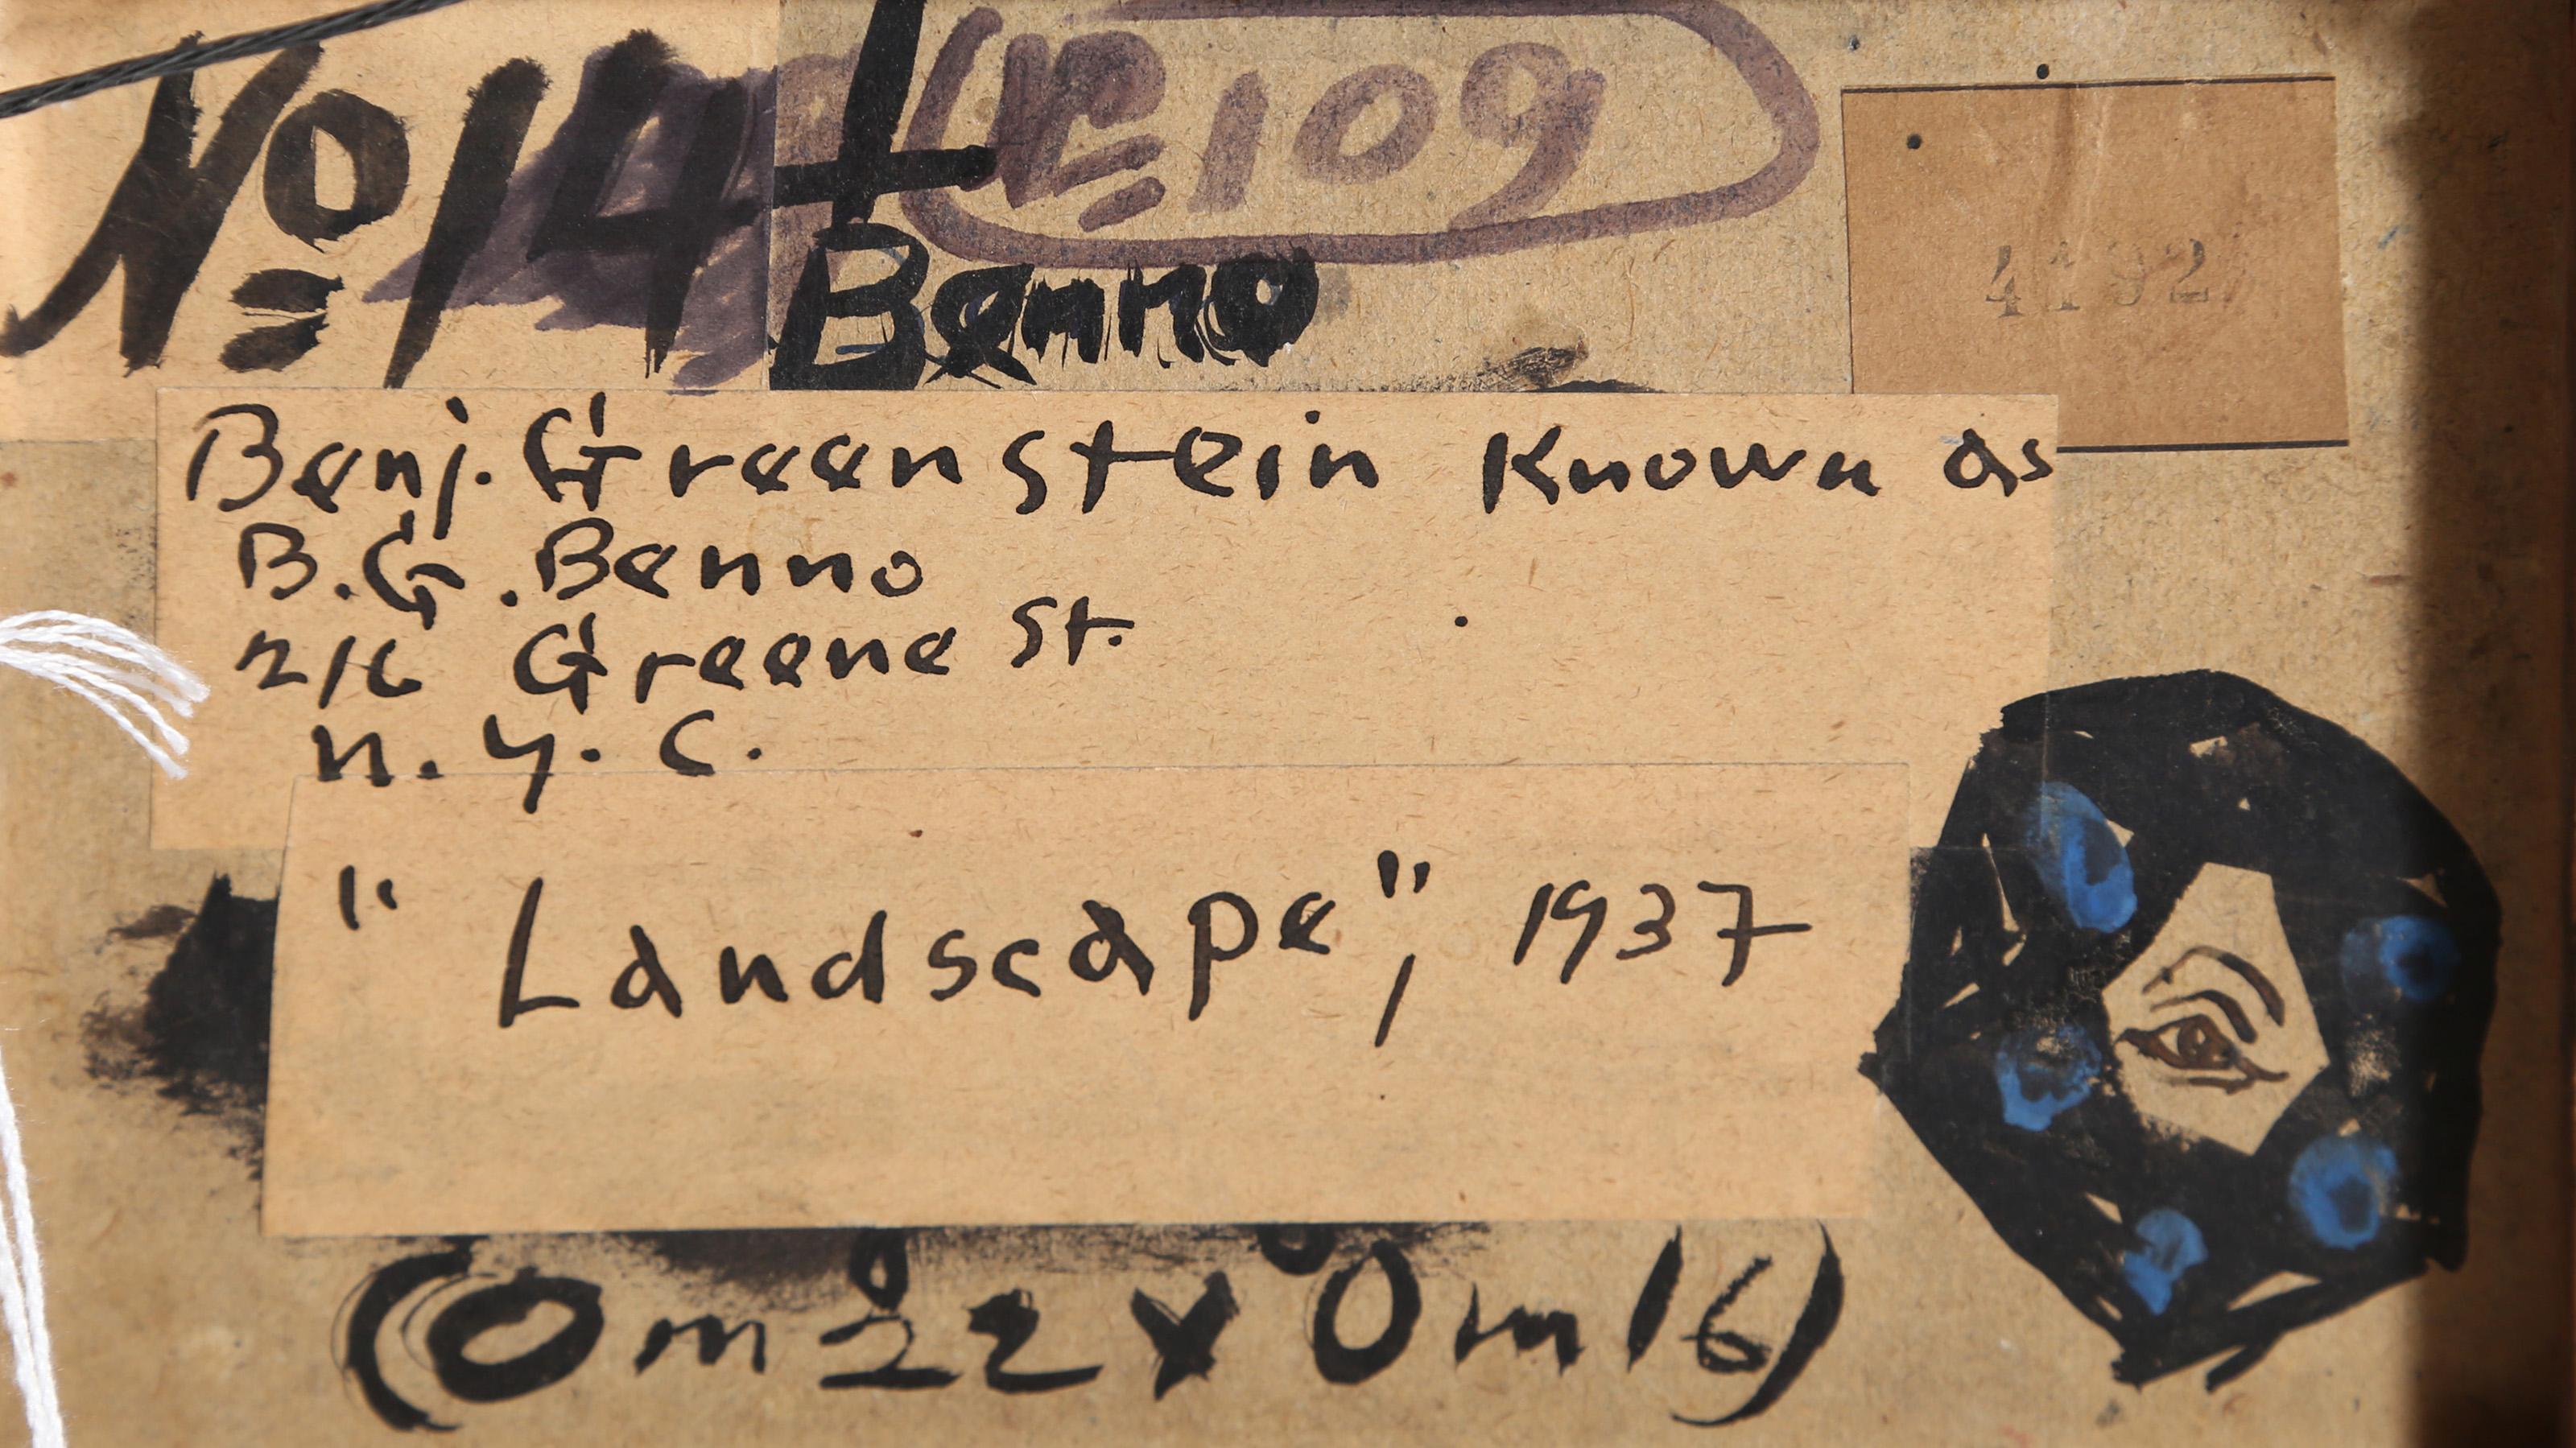 No 14
No 109
Benno
Benj. Greenstein Known as
B.G. Benno
216 Greene St.
N.Y.C.
"Landscape", 1937
(0m22 x 0m16)